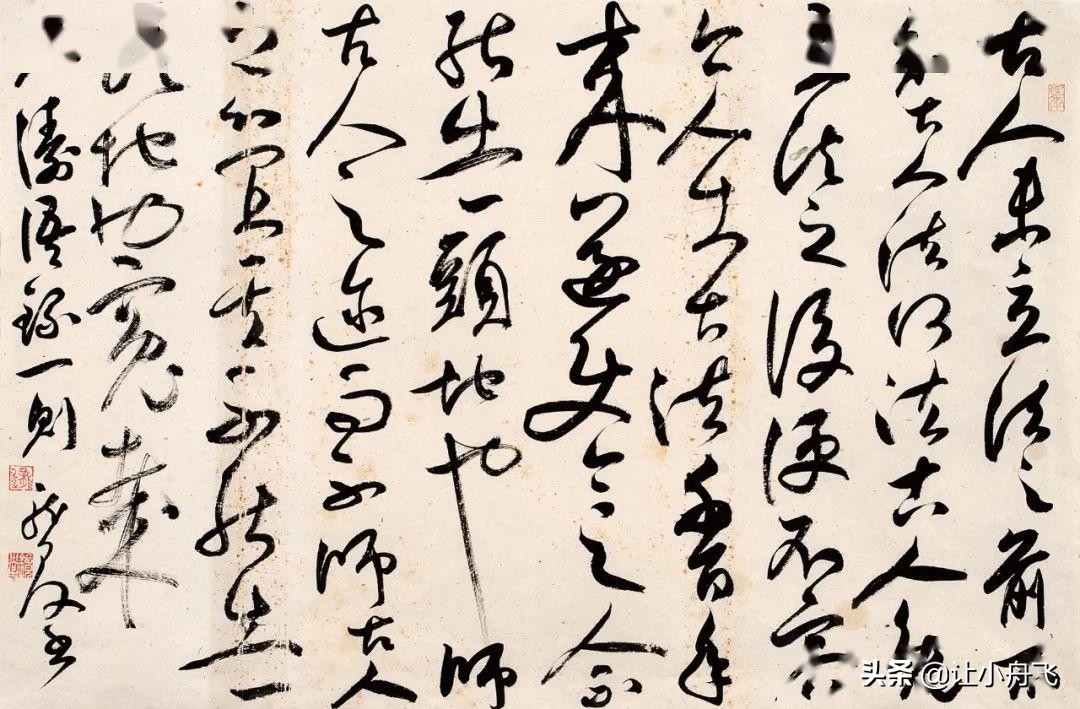 古人未立法之前不
知古人法何法古人既
立法之後便不容
今人出古法千百年
來遂使今之人不
能出一頭地也師
古人之迹而不師古人
之心宜其不能出一
頭地也冤哉
石濤語錄一則
頭条 @让小舟飞